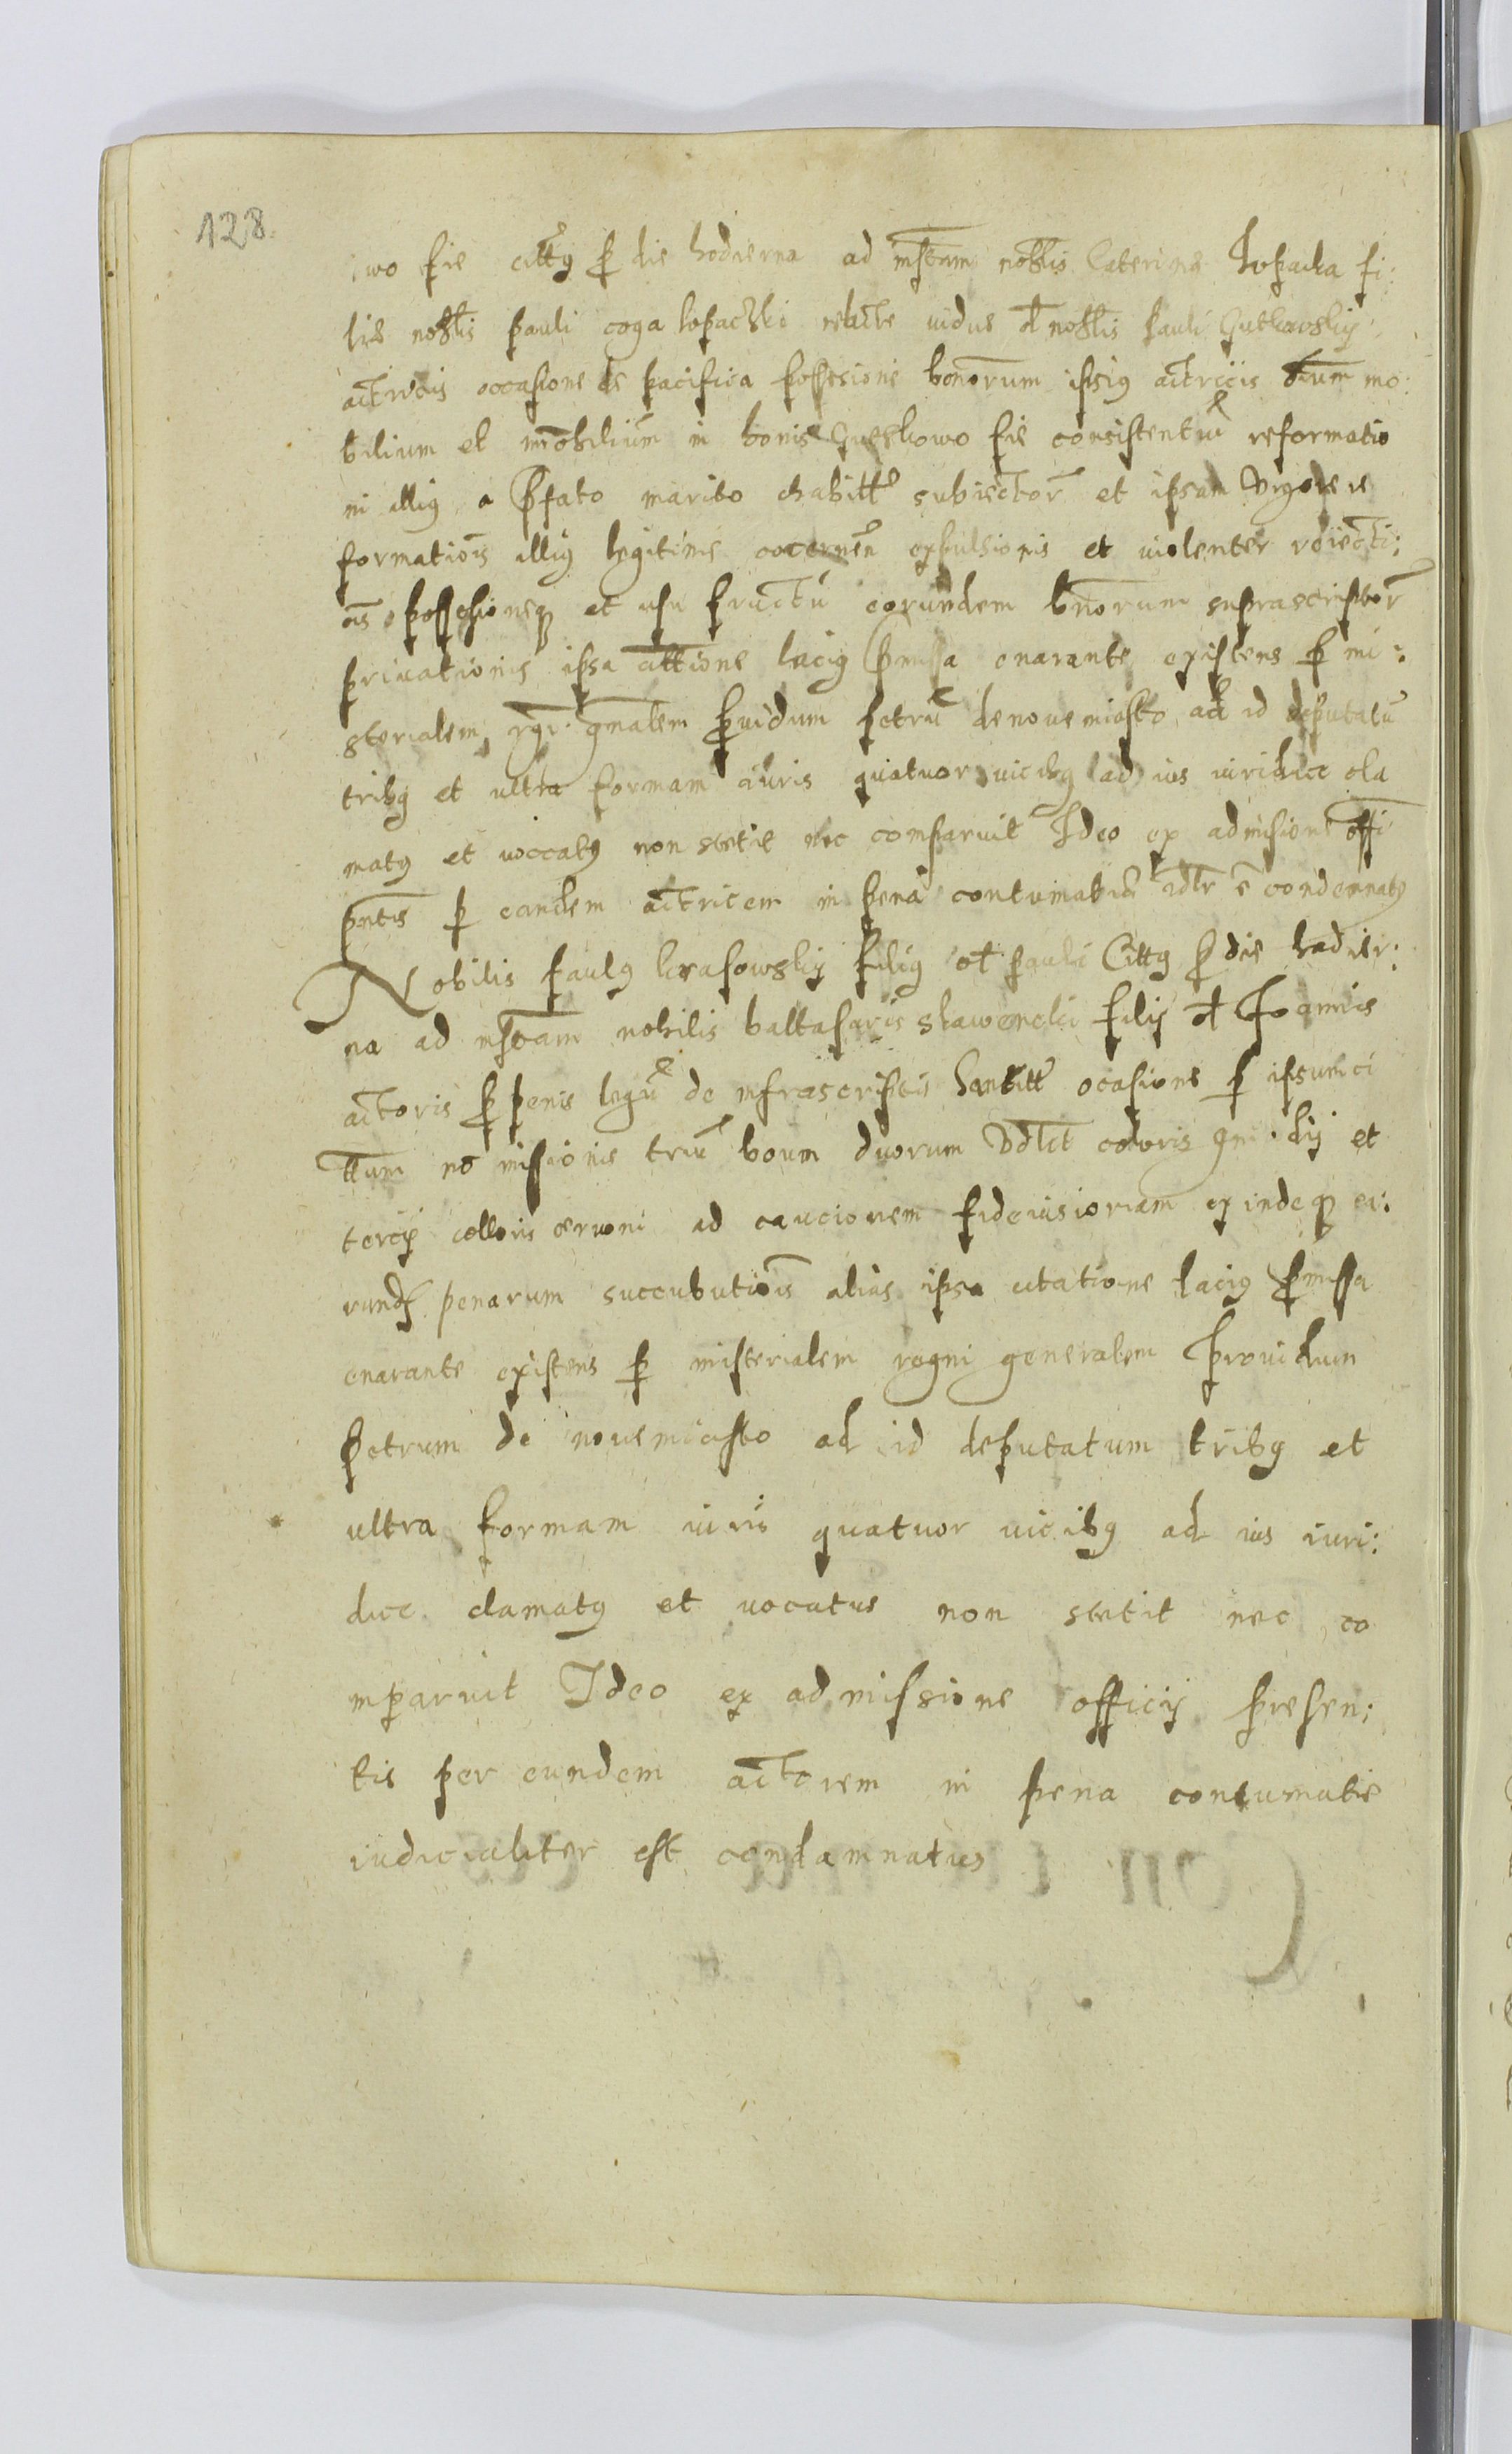 128.
wo fie cittꝰ p die hodierna ad instam noblis Caterina Lopacka fi:
lie noblis pauli coga Lopaczki relicte vidue ol noblis pauli Gutkowskij
actricis occasione de pacifica possesione bonorum ipsiꝰ actricis oium mo:
bilium et imobilium in bonis Gutkowo fie consistentiu reformatio
ni illiꝰ a pfato marito habitt subiector et ipsam vigore re
formatiois illiꝰ legitime cocernen expulsionis et violenter reiecti:
ois possesioneqꝫ et usu fructu eorundem bnorum suprascriptor
privationis ipsa cittione laciꝰ pmissa enarante existens p mi:
sterialem rgr. gnalem pvidum petru de novemiasto ad id deputatu
tribꝰ et ultra formam iuris quatuor vicibꝰ ad ius iuridice cla
matꝰ et voccatꝰ non stetit nec comparvit Ideo ex admisione offi
pntis p eandem actricem in pena contumatie idlr e condemnatꝰ
Nobilis paulꝰ Krasowskij filiꝰ ol pauli Cittꝰ p die hodier:
na ad instam nobilis baltasaris filij ol Joannis
actoris p penis legu de infrascriptis ocasione p ipsum ci
ttum no missionis triu boum duorum vdlct coloris et
tercij colloris cervoni ad caucionem fideiusioriam exindeqꝫ ea:
rundē penarum succubutiois alias ipsa citatione laciꝰ pmissa
enarante existens p misterialem regni generalem providum
petrum de novemiasto ad id deputatum tribꝰ et
ultra formam iuris quatuor vicibꝰ ad ius iuri:
dice clamatꝰ et vocatus non stetit nec co
mparuit Ideo ex admissione officij presen:
tis per eundem actorem in pena contumatie
iudicialiter est condamnatus